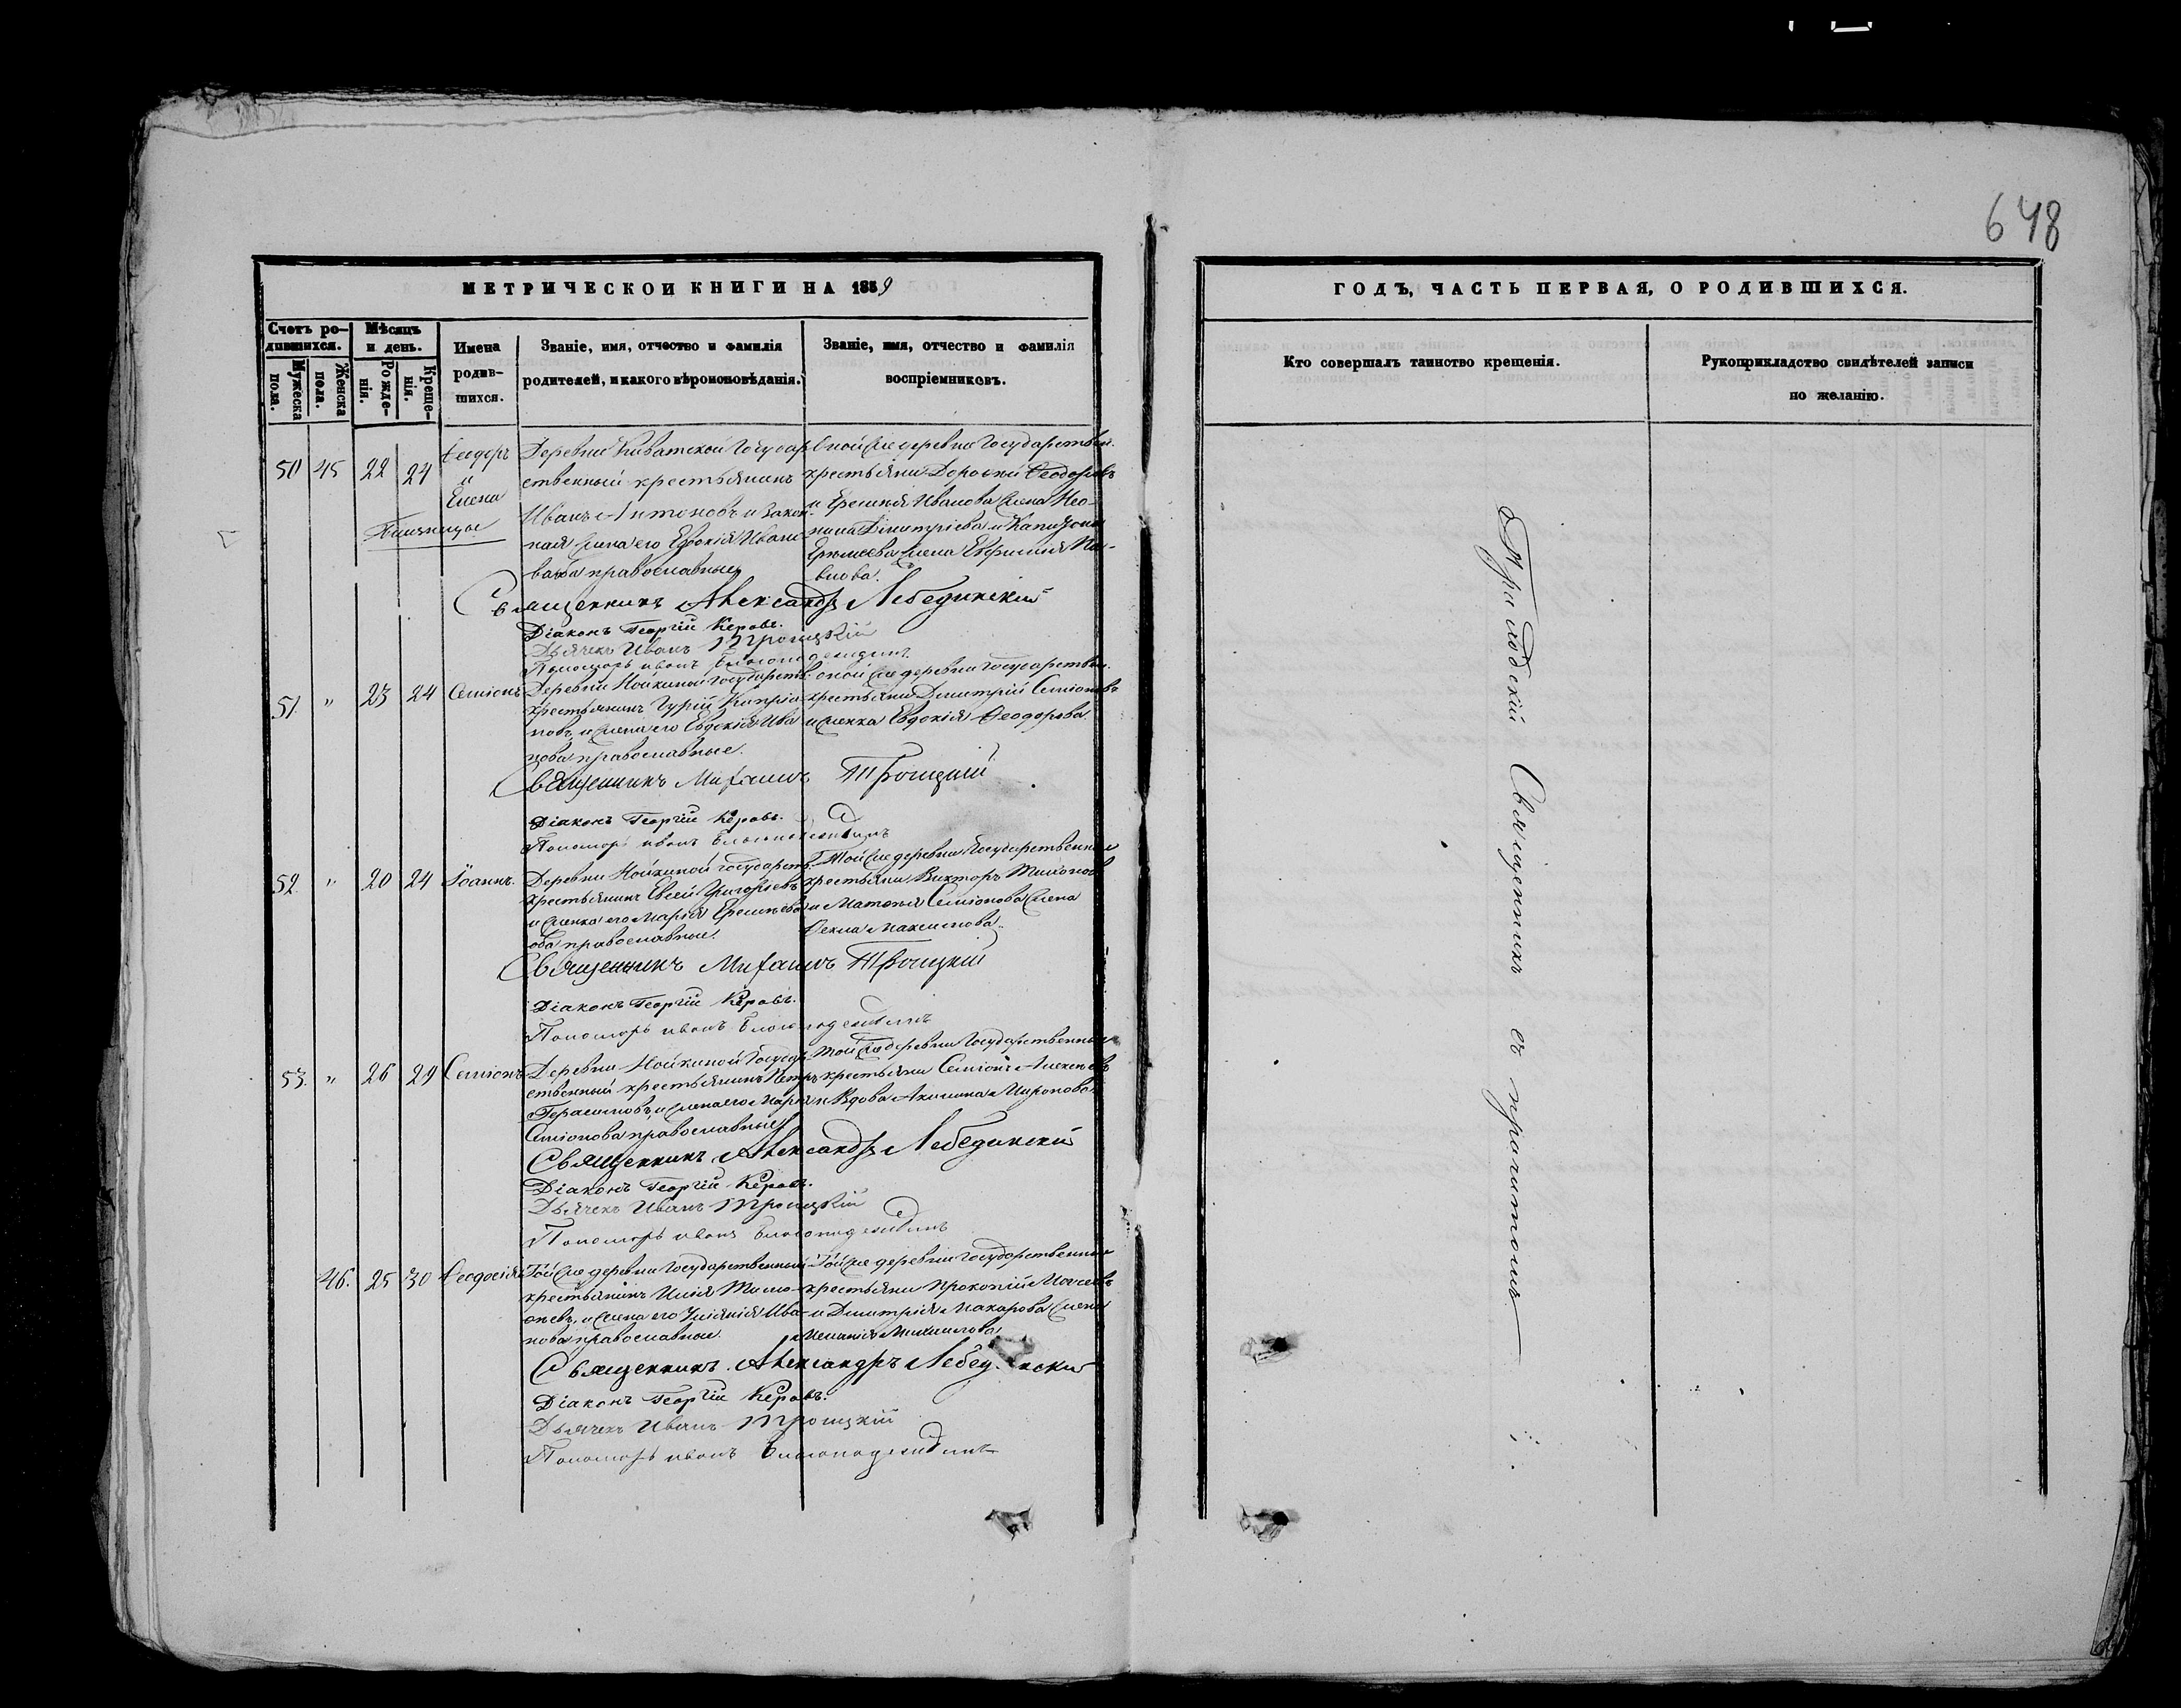 648
МЕТРИЧЕСКОЙ КНИГИ НА 1859
ГОДЪ, ЧАСТЬ ПЕРВАЯ, О РОДИВШИХСЯ.
Счетъ родившихся.
Мужеска пола.
Женска пола.
Мѣсяцъ и день.
Рожденія.
Крещенія.
Имена родившихся.
Званіе, имя, отчество и фамилія
родителей, и какого вѣроисповѣданія.
Званіе, имя, отчество и фамилія
воспріемниковъ.
Кто совершалъ таинство крещенія.
Рукоприкладство свидѣтелей записи
по желанію.
50 45 22 24
Ѳеодоръ
и
Елена
Близницы
Деревни Киватской Государ
ственный крестьянинъ
Иванъ Антоновъ и закон
ная жена его Евдокія Ивано
ва оба православные
Оной же деревни Государствен.
крестьяни Дороѳей Ѳеодоровъ
и Еремѣя Иванова жена
Димитріева и
жена Евфимія Па-
влова.
Священникъ Александръ Лебединскій
Діаконъ Георгій Керовъ.
Дьячекъ Иванъ Троицкій
Пономарь иванъ
51. " 23 24 Семіонъ
Деревни Нойкиной Государств.
крестьянинъ Гурій
новъ, и жена его Евдокія Ива
нова православные.
оной же деревни Государствен.
крестьяни Димитрій Семіоновъ
и женка Евдокія Ѳеодорова
Священникъ Михаилъ Троицкій
Діаконъ Георгій Керовъ.
Пономарь иванъ
52. " 20 24 Іоаннъ.
Деревни Нойкиной государств.
крестьянинъ Евсей Григорьевъ
и женка его Марія Еремѣева
оба православные.
Той же деревни Государственные
крестьяни Викторъ
и Матвѣя Семіонова жена
Ѳекла Максимова.
Священникъ Михаилъ Троицкій
Діаконъ Георгій Керовъ.
Пономарь иванъ
53. " 26 29 Семіонъ
Деревни Нойкиной Государ
ственный крестьянинъ Петръ
Герасимовъ, и жена его Марія
Семіонова православные
Той же деревни Государственные
крестьяни Семіонъ Алексѣевъ
и Вдова Акилина Миронова
Священникъ Александръ Лебединскій
Діаконъ Георгій Керовъ.
Дьячекъ Иванъ Троицкій
Пономарь иванъ
46. 25 30 Ѳеодосія
Той же деревни Государственный
крестьянинъ Илія Тимо-
ѳеевъ, и жена его Уліянія Ива-
нова православные.
Той же деревни Государственные
крестьяни Прокопій Моисеевъ
и Димитрія Макарова жена
Меланія Михаилова
Священникъ Александръ Лебединскій
Діаконъ Георгій Керовъ.
Дьячекъ Иванъ Троицкій
Пономарь иванъ
Приходскій Священникъ съ причтомъ